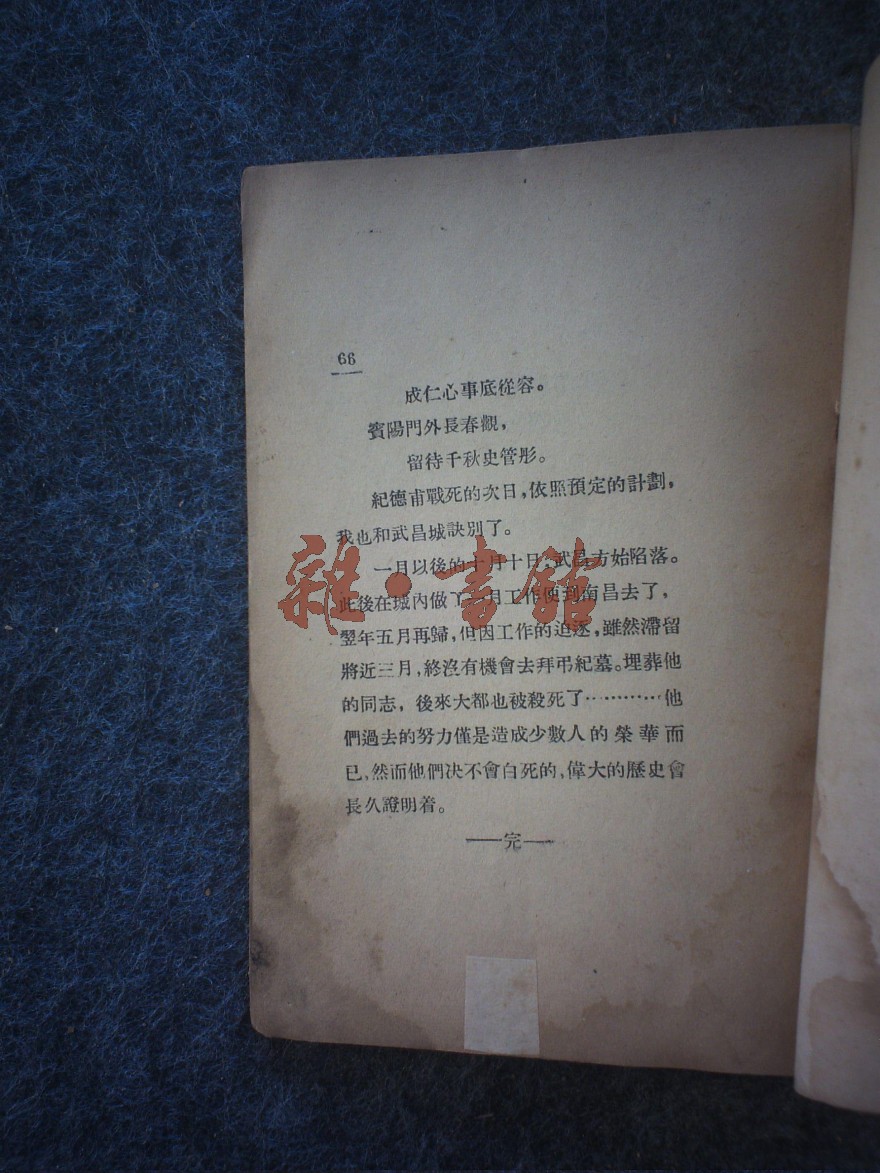 66
成仁心事底從容。
賓陽門外長春觀，
留待千秋史管彤。
紀德甫戰死的次日，依照預定的計劃，
我也和武昌城訣別了。
一月以後的十月十日，武昌方始陷落。
此後在城內做了一月工作便到南昌去了，
翌年五月再歸，但因工作的迫逐，雖然滯留
將近三月，終沒有機會去拜弔紀墓。埋葬他
的同志，後來大都也被殺死了…………他
們過去的努力僅是造成少數人的榮華而
已，然而他們決不會白死的，偉大的歷史會
長久證明着。
——完——
雜·書館